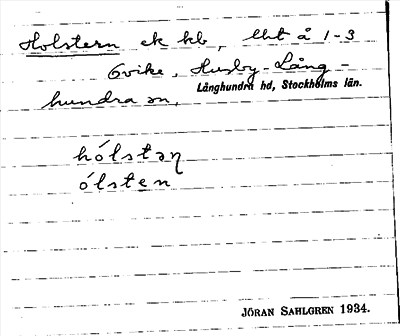 Holstern ek kb, lht å 1-3
Gvike, Husby-Lång-
Långhundra hd, Stockholms län.
hundra sn,
hólstəɳ
ólsten
JÖRAN SAHLGREN 1934.